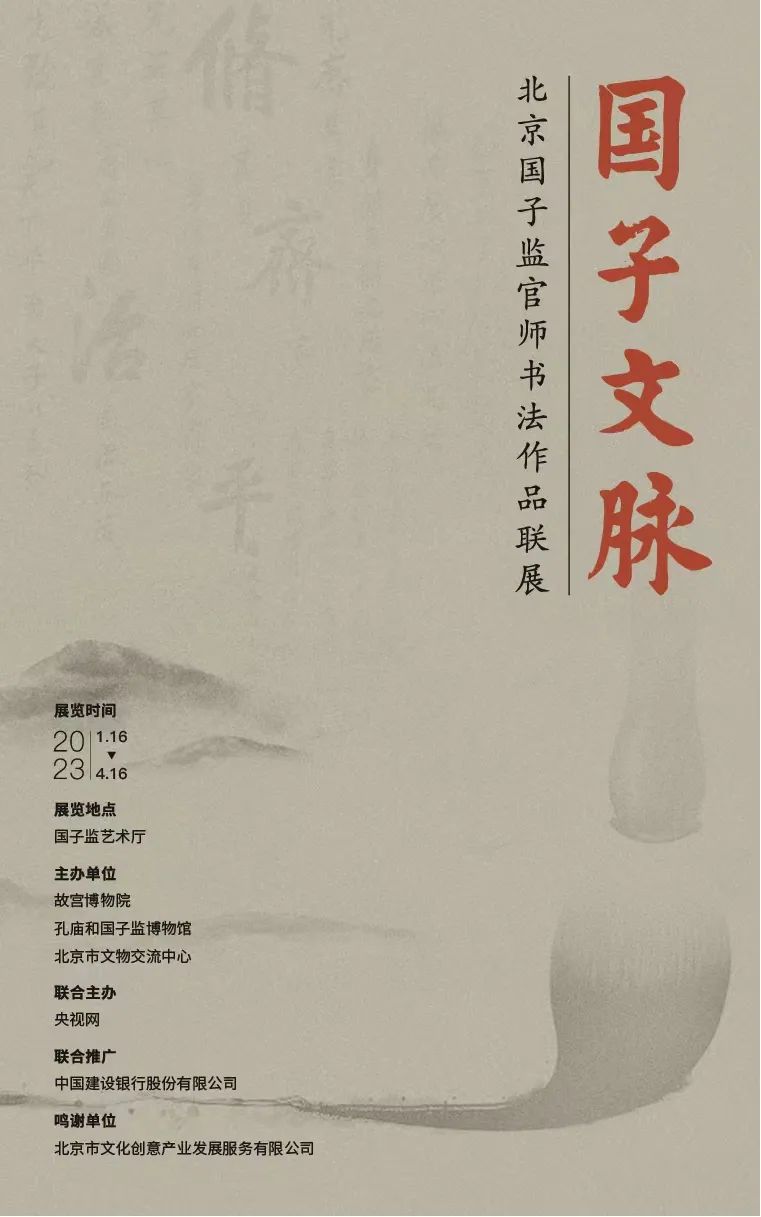 国子文脉
北京国子监官师书法作品联展
脩
齊
治
平
展览时间
2023
1.16
▼
4.16
展览地点
国子监艺术厅
主办单位
故宫博物院
孔庙和国子监博物馆
北京市文物交流中心
联合主办
央视网
联合推广
中国建设银行股份有限公司
鸣谢单位
北京市文化创意产业发展服务有限公司